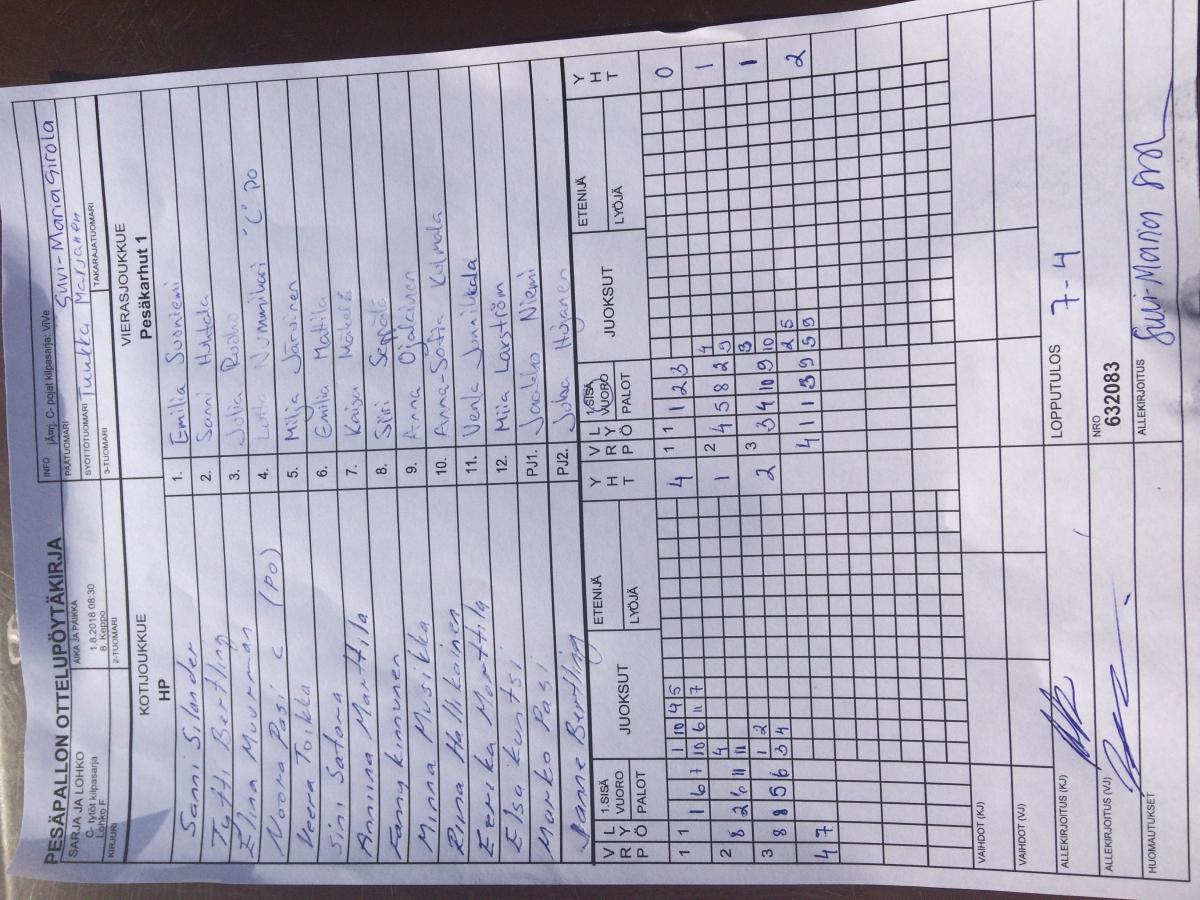 PESÄPALLON OTTELUPÖYTÄKIRJA
SARJA JA LOHKO
C- tytöt kilpasarja
Lohko F
KIRJURI
AIKA JA PAIKKA
1.8.2018 08:30
8. Keppo
2-TUOMARI
INFO jÄrrj. C- pojat kilpasarja: ViVe
PÄÄTUOMARI Suvi-Maria Girola
SYÖTTÖTUOMARI Tuukka Marjanen
3-TUOMARI
TAKARAJATUOMARI
KOTIJOUKKUE
HP
VIERASJOUKKUE
Pesäkarhut 1
Sanni Silander
Tytti Bertling
Elina Muurman
Noora Pasi C (PO)
Veera Toikka
Sini Satama
Anniina Marttila
Fanny Kinnunen
Minna Musikka
Riina Hallikainen
Eerika Marttila
Elsa Kuntsi
Marko Pasi
Janne Bertling
1. Emilia Suoniemi
2. Sanni Huhtala
3. Julia
4. Lotta Nummikari "C" PO
5. Milja Järvinen
6. Emilia Mattila
7. Kaisa Mäkelä
8. Siiri Seppälä
9. Anna Ojalainen
10. Anna-Sofia Kulmala
11. Venla Junnikkala
12. Miia Larström
PJ1. Jaakko Niemi
PJ2. Juha
VRP LYÖ 1.SISÄ VUORO PALOT JUOKSUT ETENIJÄ LYÖJÄ YHT
VRP LYÖ 1.SISÄ VUORO PALOT JUOKSUT ETENIJÄ LYÖJÄ YHT
1 10 4 5
1 1 1 6 7 10 6 11 7 4
1 1 1 2 3 0
4
2 8 2 6 11 11 1
4
2 4 5 8 2 9 1
1 2
3 8 8 5 6 3 4 2
3
3 3 4 10 9 10 1
4 7
2 5
4 1 1 3 9 5 9 2
VAIHDOT (KJ)
VAIHDOT (VJ)
ALLEKIRJOITUS (KJ)
LOPPUTULOS 7-4
ALLEKIRJOITUS (VJ)
NRO
632083
HUOMAUTUKSET
ALLEKIRJOITUS Suvi-Maria